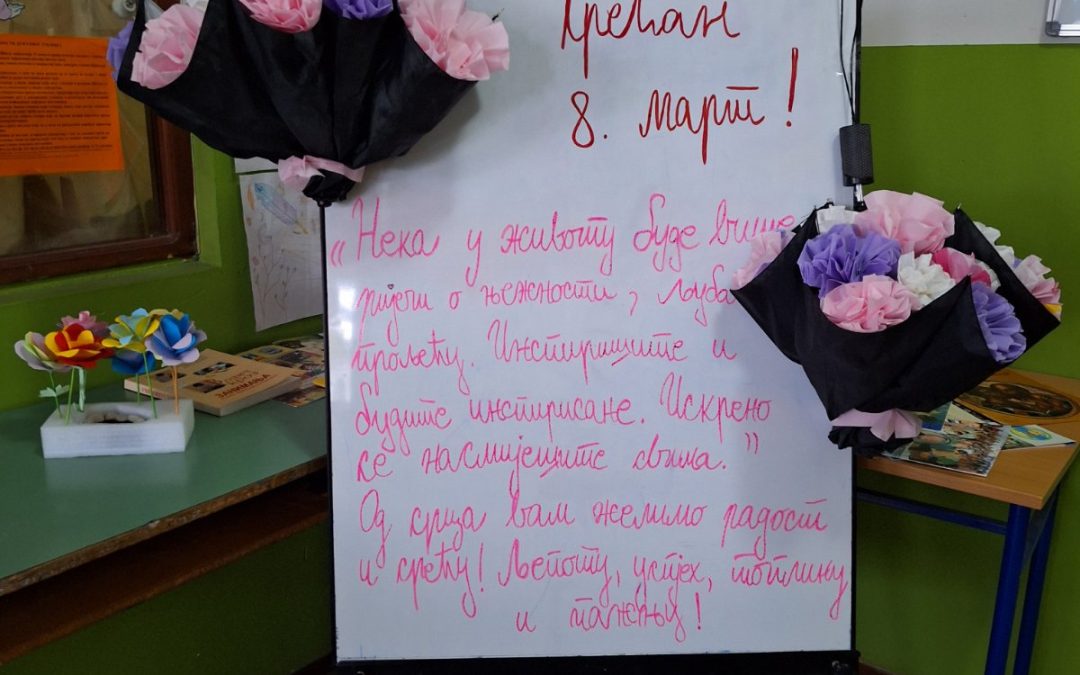 Срећан
8. Март!
„Нека у животу буде више
ријечи о њежности,
прољећу. Инспиришите и
будите инспирисане. Искрено
се насмијешите свима.”
Од срца вам желимо радост
и срећу! Љепоту, успјех, топлину
и пажњу!
ЗАНИМАЊА